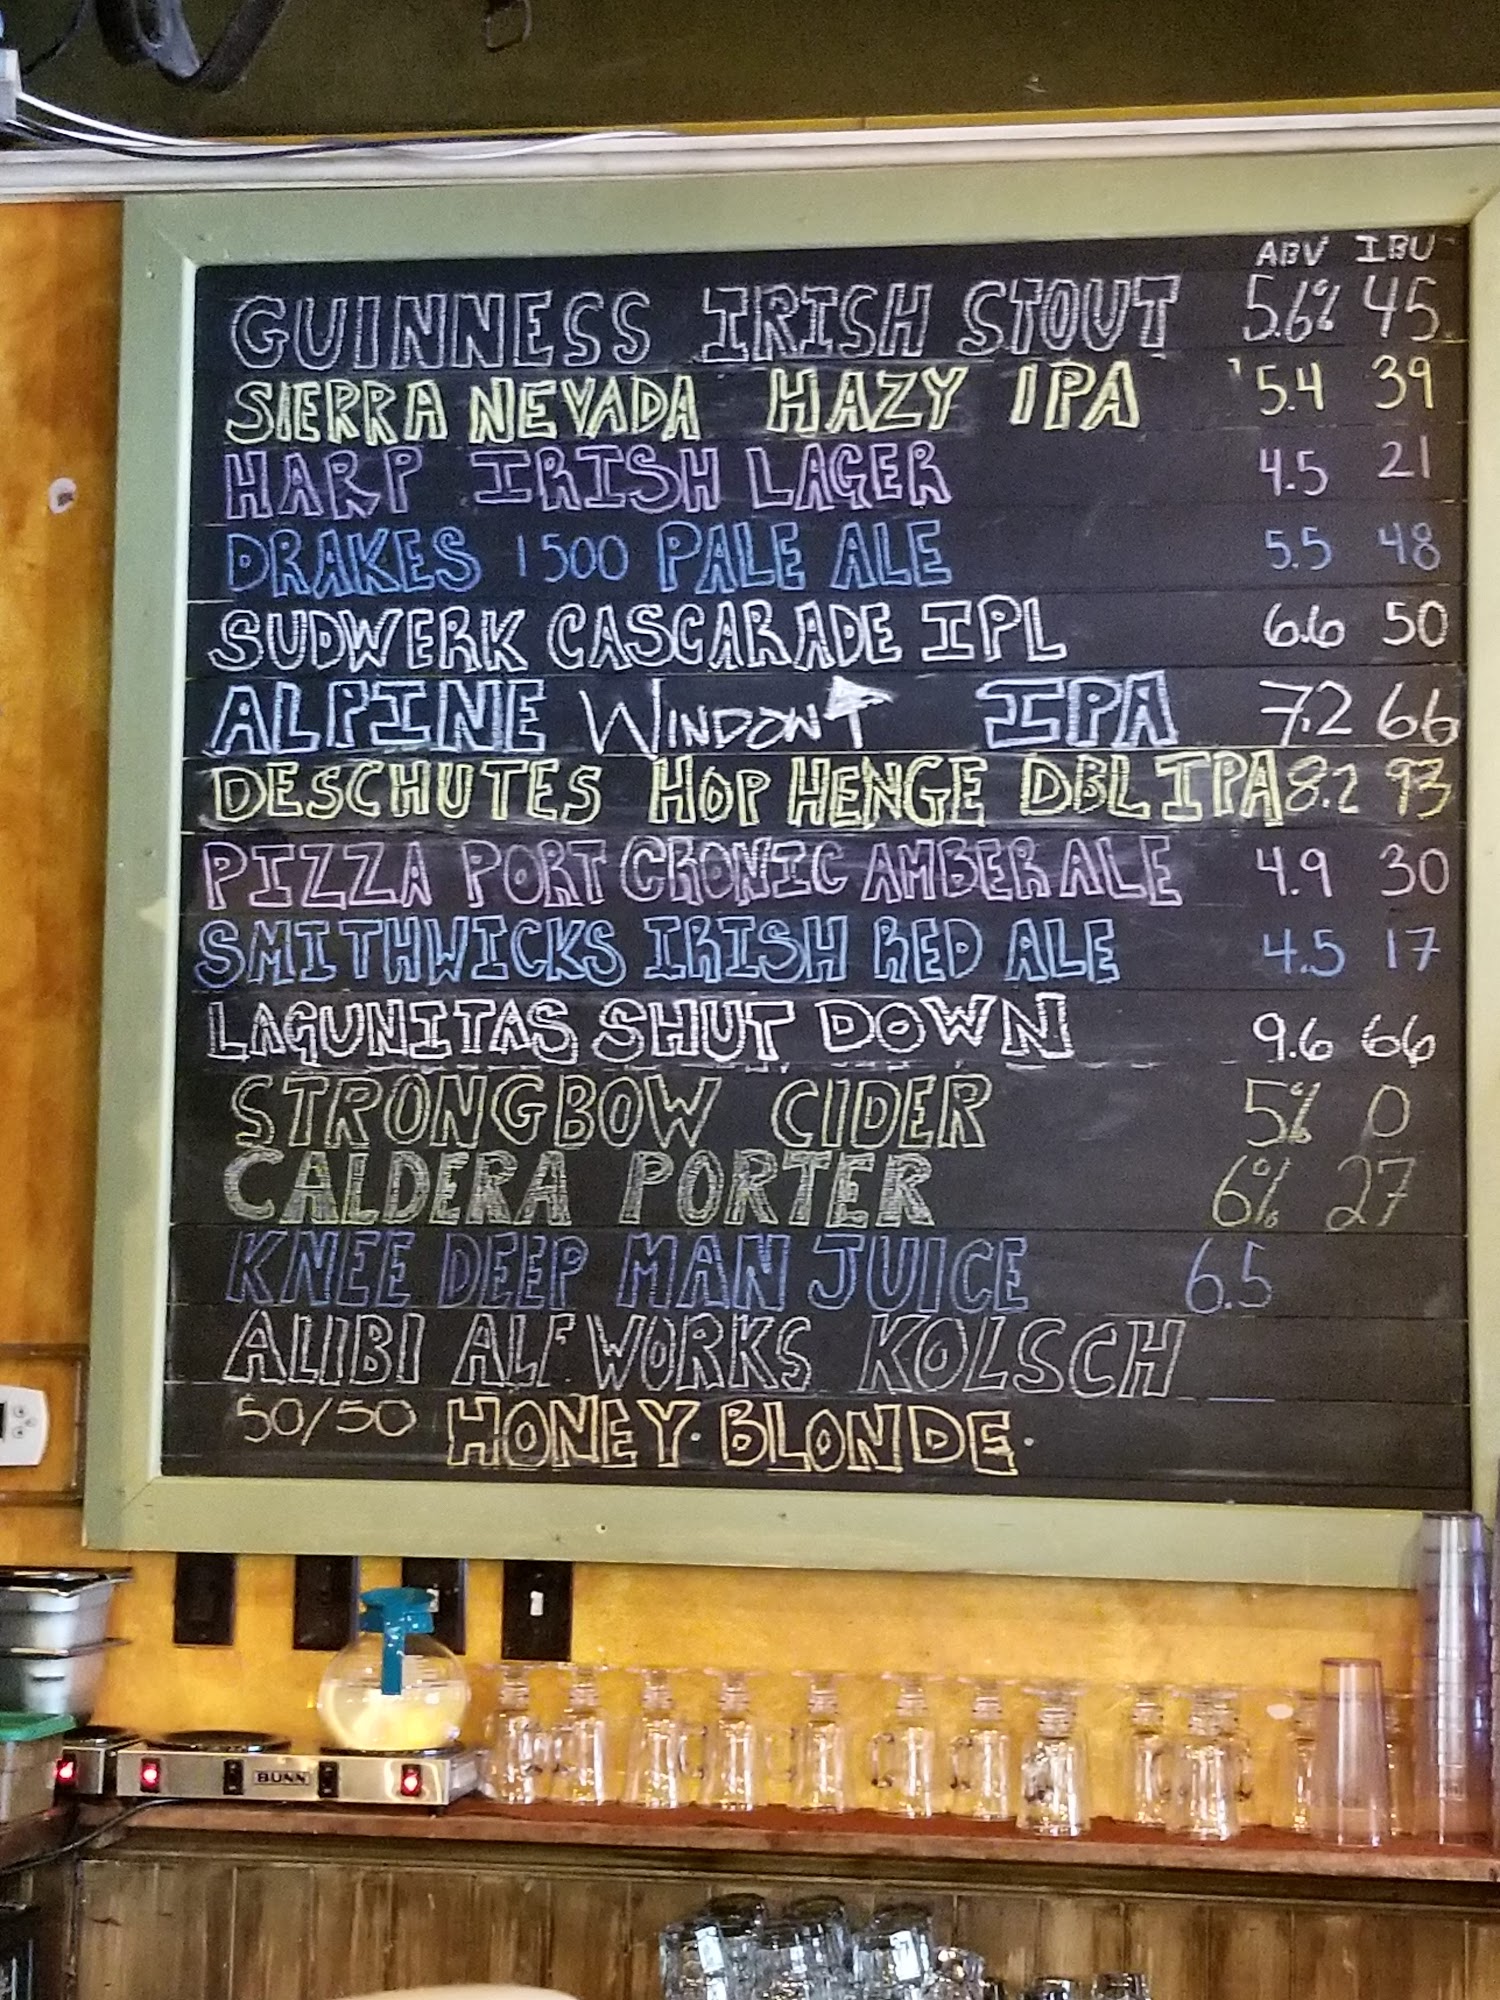 ABV IBU
GUINNESS IRISH STOUT 5.6% 45
SIERRA NEVADA HAZY IPA 5.4 39
HARP IRISH LAGER 4.5 21
DRAKES 1500 PALE ALE 5.5 48
SUDWERK CASCARADE IPL 6.6 50
ALPINE WINDOW IPA 7.2 66
DESCHUTES HOP HENGE DBL IPA 8.2 93
PIZZA PORT CRONIC AMBER ALE 4.9 30
SMITHWICKS IRISH RED ALE 4.5 17
LAGUNITAS SHUT DOWN 9.6 66
STRONGBOW CIDER 5% 0
CALDERA PORTER 6% 27
KNEE DEEP MAN JUICE 6.5
ALIBI ALE WORKS KOLSCH
50/50 HONEY BLONDE
BUNN